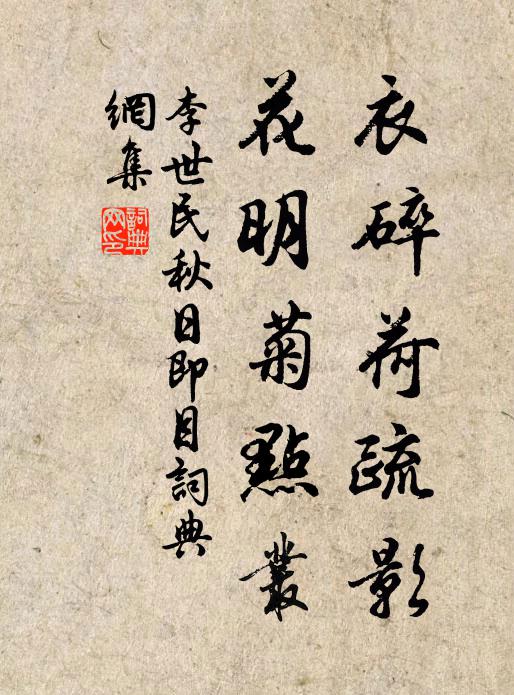 衣碎荷疏影
花明菊點叢
李世民秋日即目詞典
網集
詞典
网印